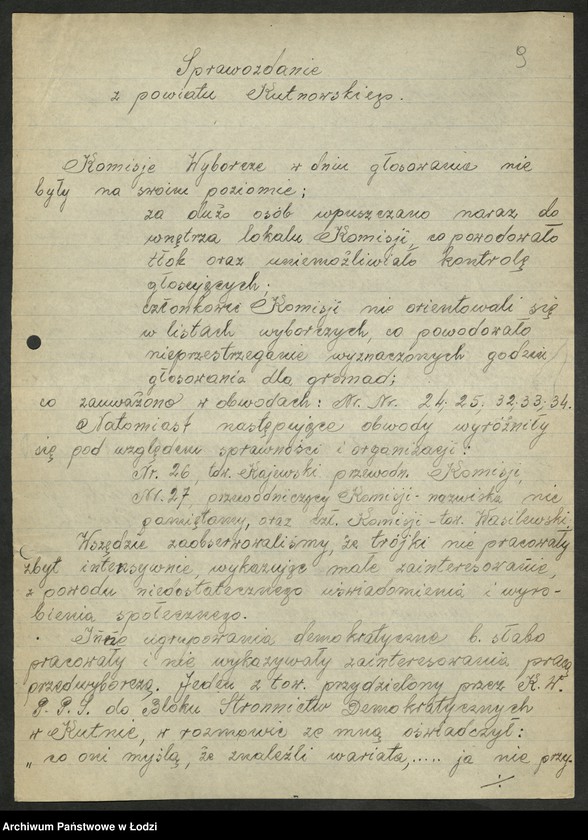 9
Sprawozdanie
z powiatu Kutnowskiego.
Komisje Wyborcze w dniu głosowania nie
były na swoim poziomie;
za dużo osób wpuszczano naraz do
wnętrza lokalu Komisji, co powodowało
tłok oraz uniemożliwiało kontrolę
głosujących;
członkowie Komisji nie orientowali się
w listach wyborczych, co powodowało
nieprzestrzeganie wyznaczonych godzin
głosowania dla gromad;
co zauważono w obwodach: Nr. Nr. 24. 25, 32. 33. 34.
Natomiast następujące obwody wyróżniły
się pod względem sprawności i organizacji:
Nr. 26, tow. Kajewski przewodn. Komisji,
Nr. 27, przewodniczący Komisji - nazwiska nie
pamiętamy, oraz czł. Komisji - tow. Wasilewski,
Wszędzie zaobserwowaliśmy, że trójki nie pracowały
zbyt intensywnie, wykazując małe zainteresowanie,
z powodu niedostatecznego uświadomienia i wyro-
bienia społecznego.
Inne ugrupowania demokratyczne b. słabo
pracowały i nie wykazywały zainteresowania pracą
przedwyborczą. Jeden z tow. przydzielony przez K. W.
P. P. S. do Bloku Stronnictw Demokratycznych
w Kutnie, w rozmowie ze mną oświadczył:
„ co oni myślą, że znaleźli wariata,..... ja nie przy-
./.
Archiwum Państwowe w Łodzi